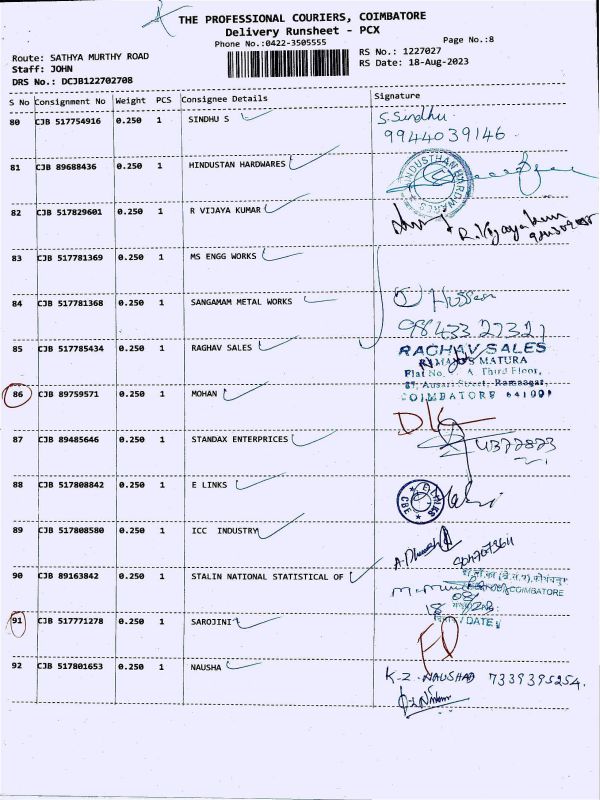 THE PROFESSIONAL COURIERS, COIMBATORE
Delivery Runsheet - PCX
Phone No.:0422-3505555
Page No.:8
Route: SATHYA MURTHY ROAD
RS No.: 1227027
Staff: JOHN
RS Date: 18-Aug-2023
DRS No.: DCJB122702708
S No Consignment No Weight PCS Consignee Details Signature
80 CJB 517754916 0.250 1 SINDHU S S.Sindhu
9944039146
81 CJB 89688436 0.250 1 HINDUSTAN HARDWARES
82 CJB 517829601 0.250 1 R VIJAYA KUMAR R.Vijayakum
83 CJB 517781369 0.250 1 MS ENGG WORKS
84 CJB 517781368 0.250 1 SANGAMAM METAL WORKS
98433 27321
85 CJB 517785434 0.250 1 RAGHAV SALES RAGHAV SALES
MATURA
Flat No. A Third Floor,
Ansari Street, Ramnagar,
COIMBATORE 641009
86 CJB 89759571 0.250 1 MOHAN DL
87 CJB 89485646 0.250 1 STANDAX ENTERPRICES
88 CJB 517808842 0.250 1 E LINKS E LINKS CBE
89 CJB 517808580 0.250 1 ICC INDUSTRY
90 CJB 89163842 0.250 1 STALIN NATIONAL STATISTICAL OF
COIMBATORE
91 CJB 517771278 0.250 1 SAROJINI / DATE
92 CJB 517801653 0.250 1 NAUSHA
K-Z. NAUSHAD 7339395254.